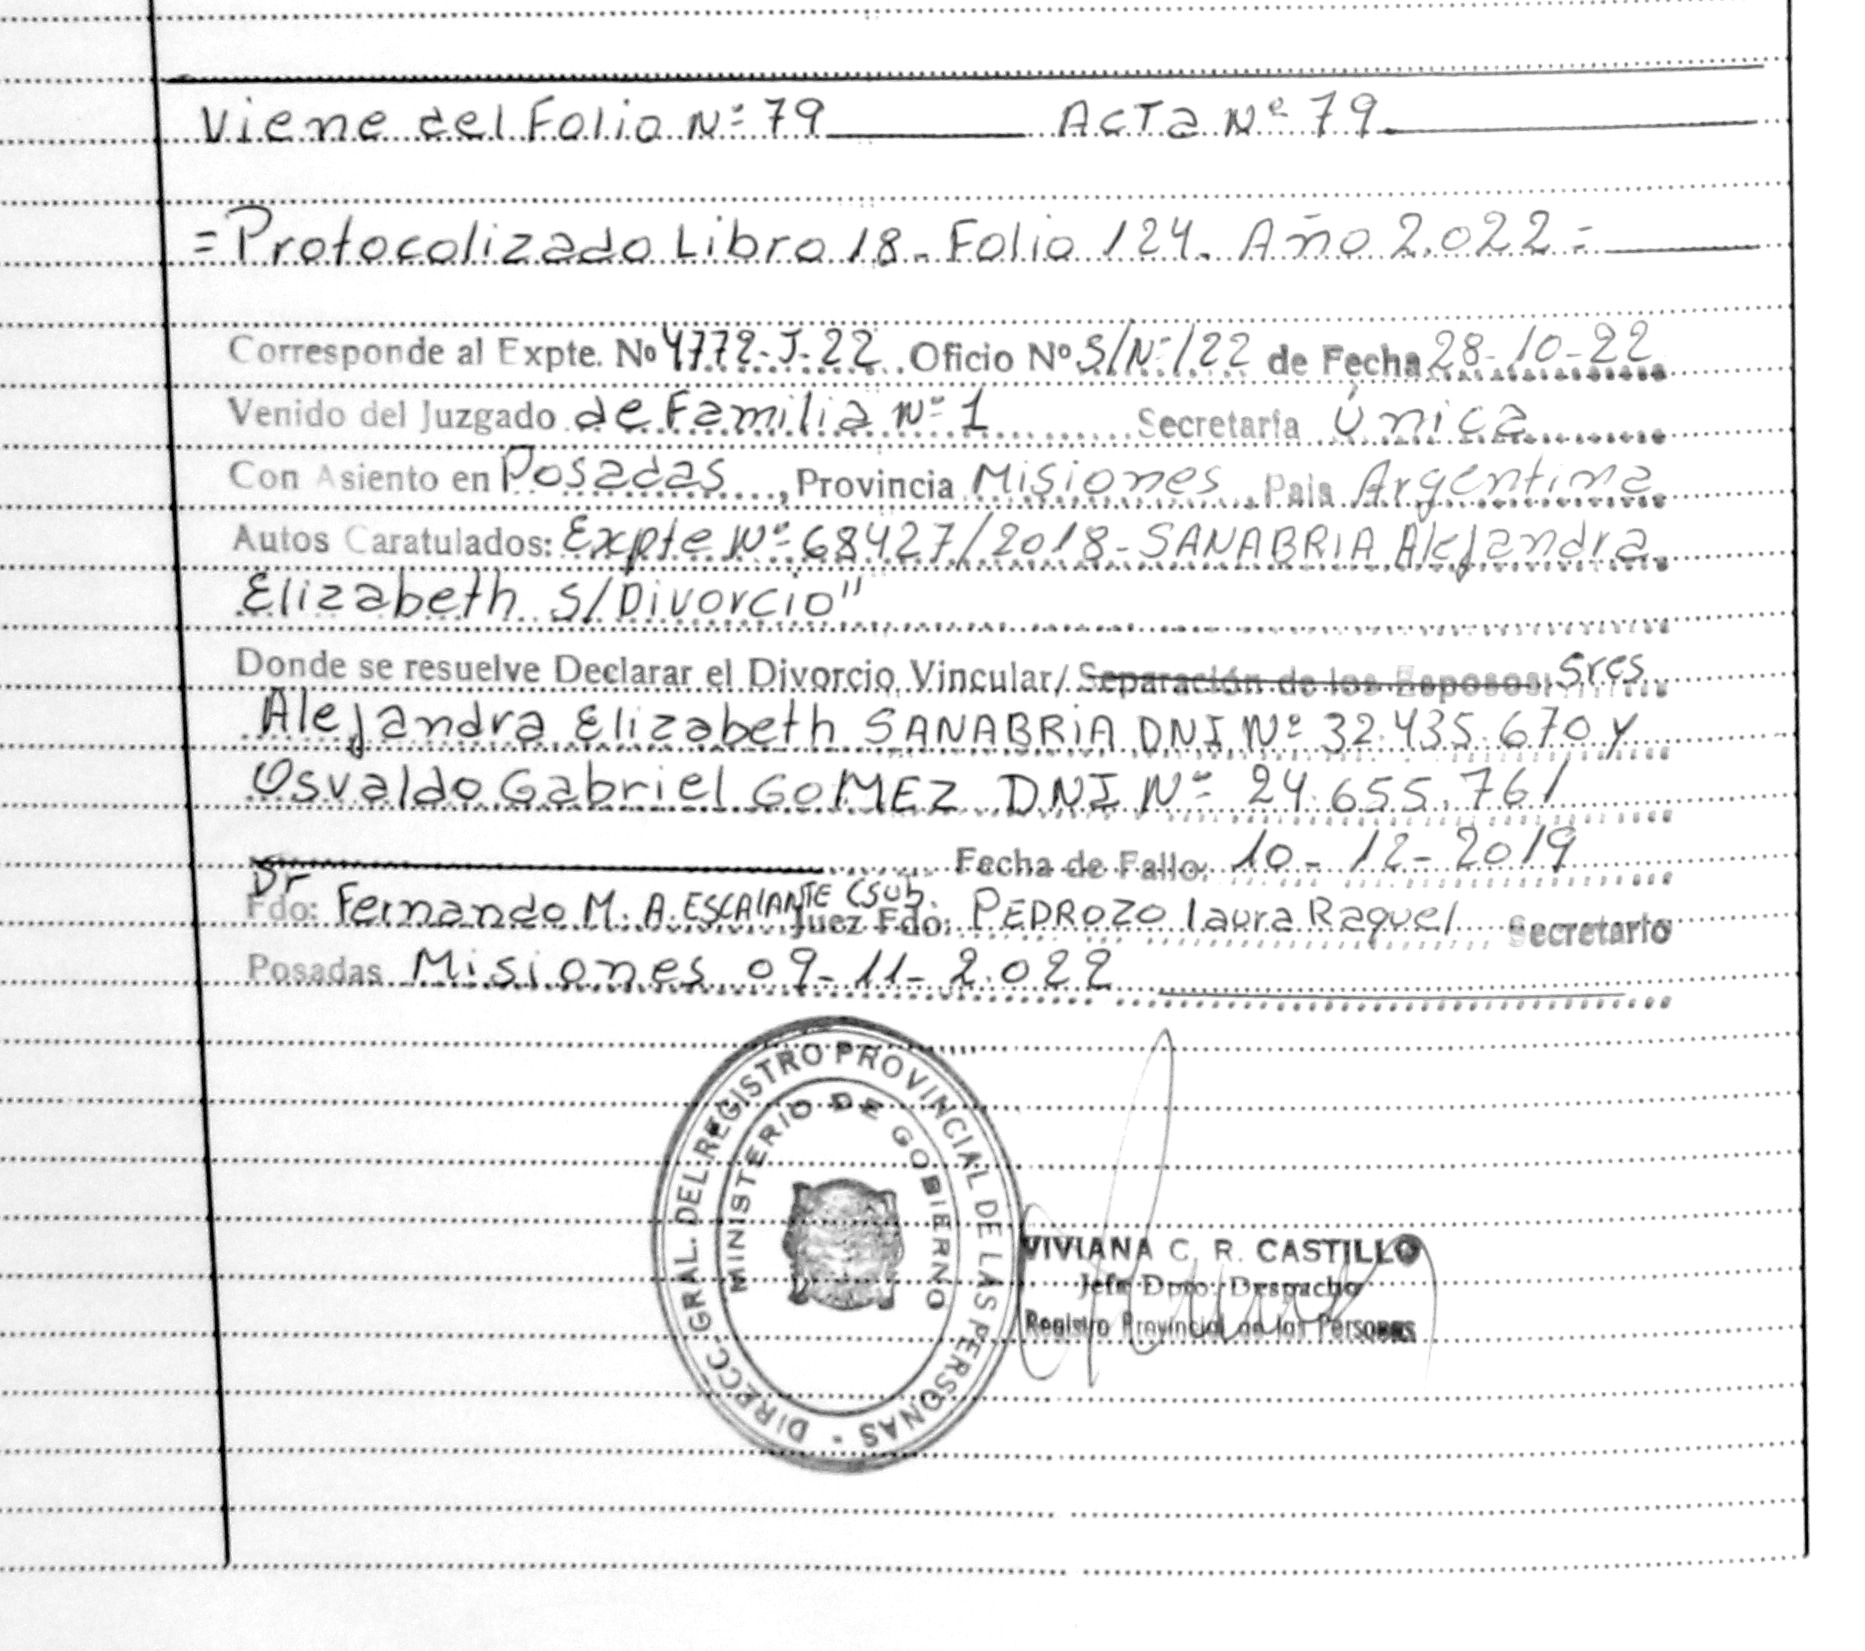 Viene del Folio Nº 79 Acta Nº 79
= Protocolizado Libro 18. Folio 124. Año 2.022 =
Corresponde al Expte. Nº 4772-J-22 Oficio Nº S/Nº/22 de Fecha 28-10-22
Venido del Juzgado de Familia Nº 1 Secretaría Única
Con Asiento en Posadas, Provincia Misiones, País Argentina
Autos Caratulados: Expte Nº 68427/2018-SANABRIA Alejandra
Elizabeth S/Divorcio"
Donde se resuelve Declarar el Divorcio Vincular/ Separación de los Esposos: Sres
Alejandra Elizabeth SANABRIA DNI Nº 32.435.670 y
Osvaldo Gabriel GOMEZ DNI Nº 24.655.761
Fecha de Fallo: 10-12-2019
Fdo: Dr Fernando M. A. ESCALANTE (sub. Juez Fdo: PEDROZO Laura Raquel Secretario
Posadas Misiones 09-11-2.022
DIRECC. GRAL. DEL REGISTRO PROVINCIAL DE LAS PERSONAS
MINISTERIO DE GOBIERNO
VIVIANA C. R. CASTILLO
Jefe Dpto. Despacho
Registro Provincial de las Personas